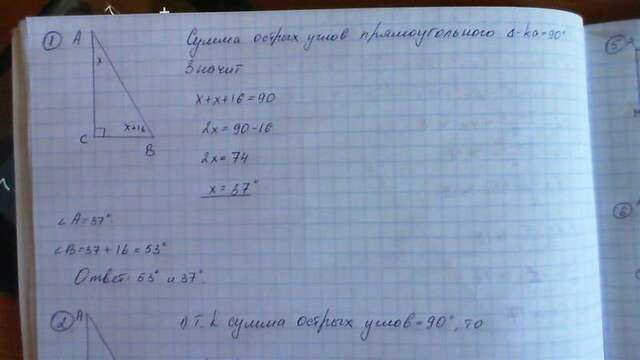 1 A Сумма острых углов прямоугольного Δ-ка=90°
Значит
x
x+x+16=90
C x+16 B
2x=90-16
2x=74
x=37°
∠A=37°
∠B=37+16=53°
Ответ: 53° и 37°.
2 A 1) Т.к сумма острых углов=90°, то
5
6